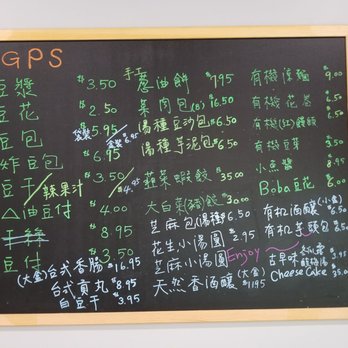 GPS
豆漿 $3.50
豆花 $2.50
豆包 $5.95
炸豆包 $6.95
豆干/辣果汁 $3.50
△油豆付 $4.00
干絲 $8.95
豆付 $3.50
(大盒)台式香腸 $16.95
台式貢丸 $8.95
白豆干 $3.95
手工蔥油餅 $7.95
菜肉包
湯種豆沙包 $6.50
湯種芋泥包 $6.50
韮菜蝦餃 $35.00
大白菜(豬)餃 $30.00
芝麻包(湯種) $6.50
花生小湯圓 $2.95
芝麻小湯圓
天然香滷釀(大盒) $11.95
有機涼麵 $9.00
有機花卷 $6.50
有機(紅)饅頭 $6.50
有機豆芽 $3.50
小魚醬 $8.95
Boba豆花 $8.00
有机滷釀(小盒) $8.50
有机芋頭包 $6.00
Enjoy
古早味
Cheese Cake $35.00